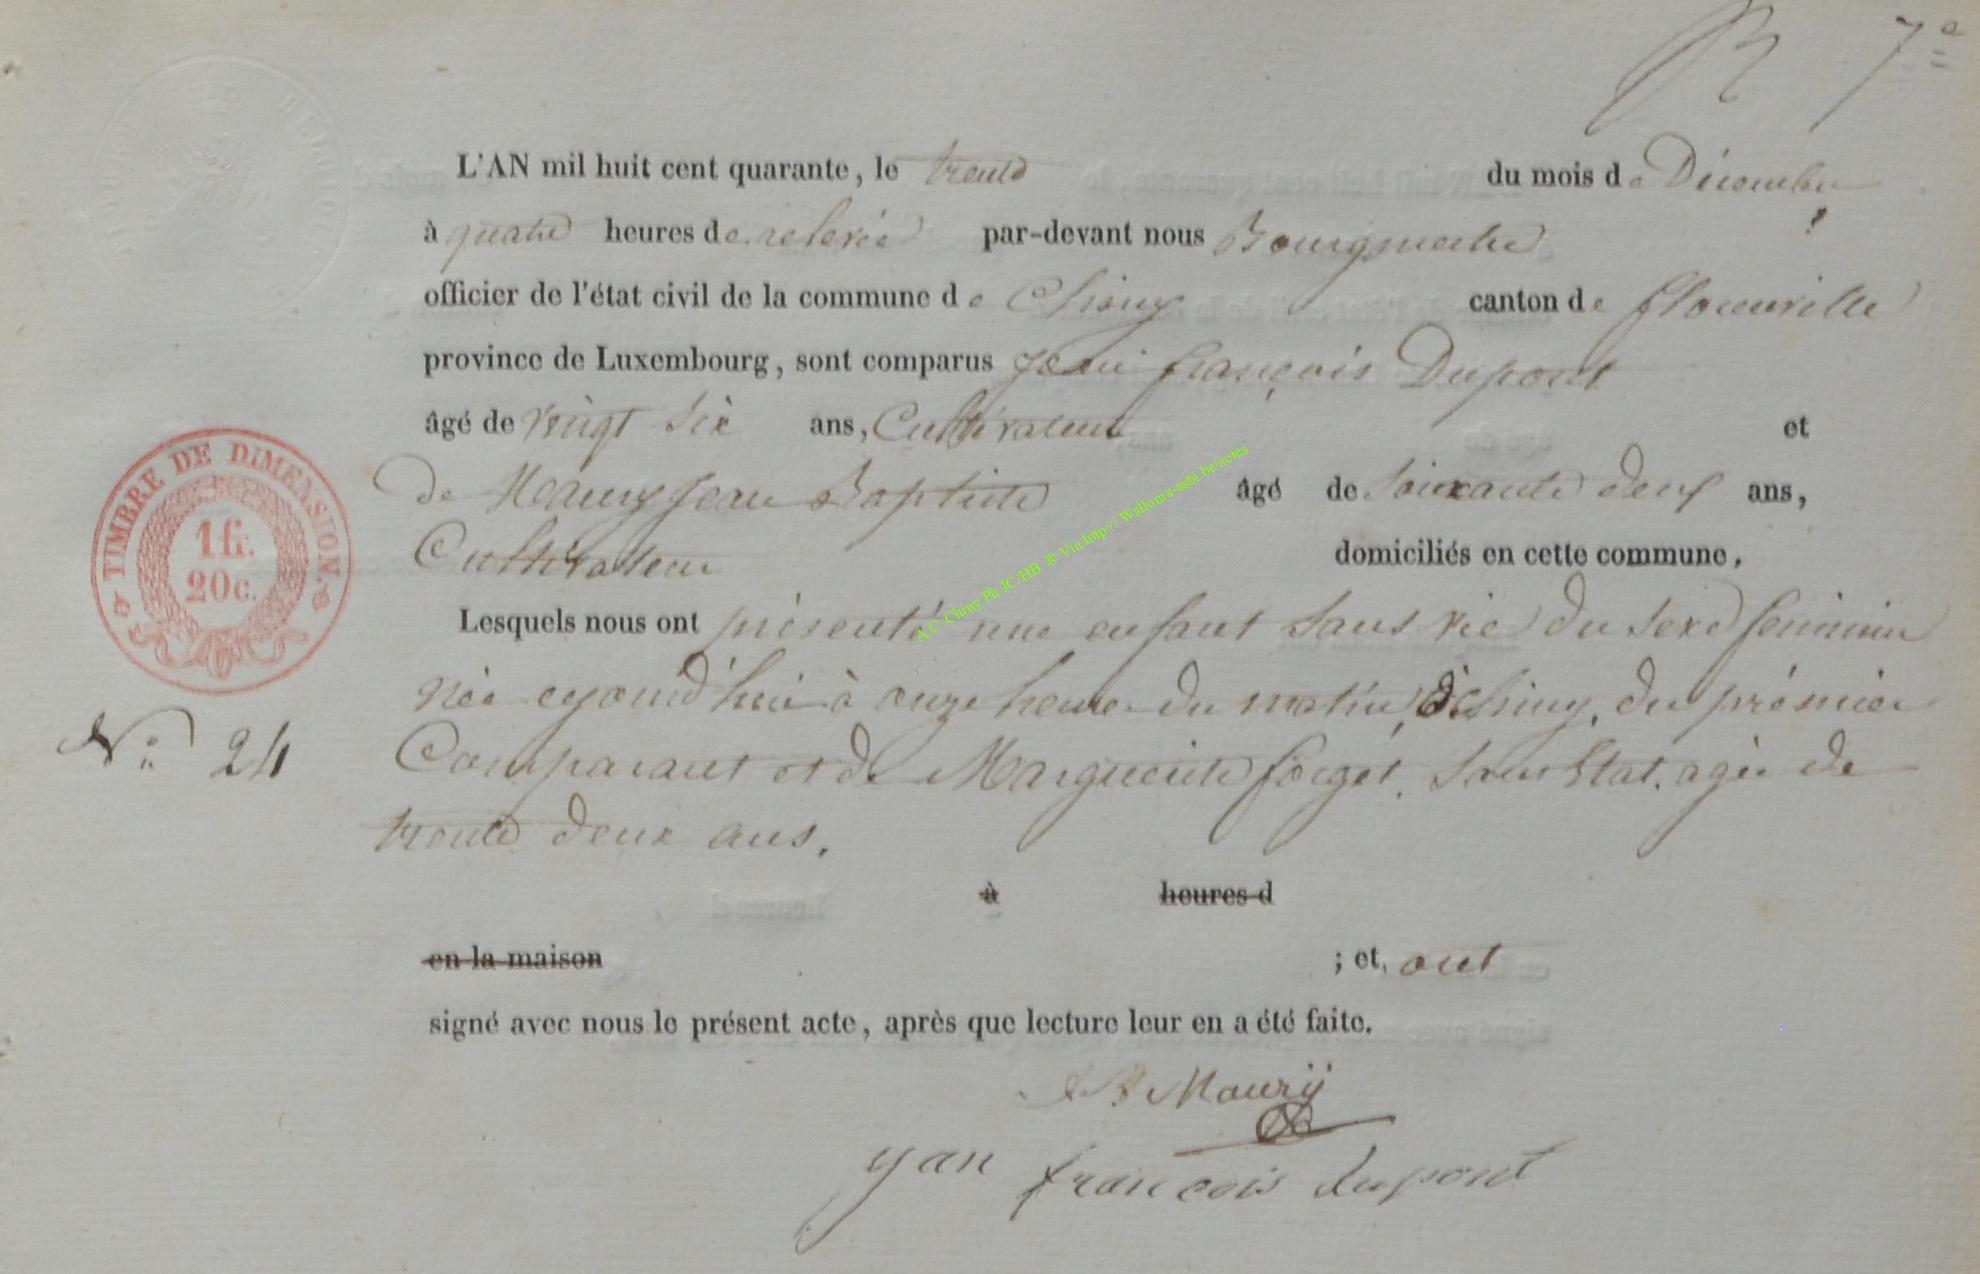 R 7e
L'AN mil huit cent quarante, le trente du mois de Décembre
à quatre heures de relevée par-devant nous Bourgmestre
officier de l'état civil de la commune de Chiny canton de florenville
province de Luxembourg, sont comparus Jean françois Dupont
âgé de vingt six ans, Cultivateur et
de Maury Jean Baptiste âgé de Soixante deux ans,
Cultivateur domiciliés en cette commune,
Lesquels nous ont présenté une enfant sans vie du sexe féminin
née cejourd'hui à onze heures du matin, à Chiny, du prémier
Comparant et de Marguerite forget, sans Etat, agée de
trente deux ans.
à heures d
en la maison ; et, ont
signé avec nous le présent acte, après que lecture leur en a été faite.
Maurÿ
yan francois dupont
TIMBRE DE DIMENSION.
1 fr.
20 c.
No 24
A.C Chiny Ph JC/HB ® Via http://Wallonia-asbl.be/actes